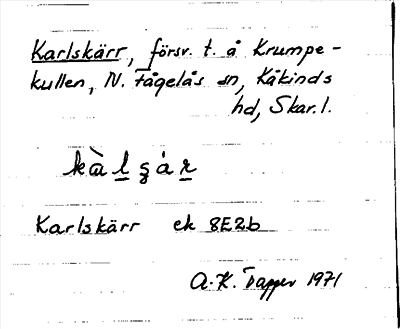 Karlskärr, försv. t. å Krumpe-
kullen, N. Fågelås sn, Kåkinds
hd, Skar. l.
kàl̲ʂár̲
Karlskärr ek 8E2b
A.-K. Tapper 1971